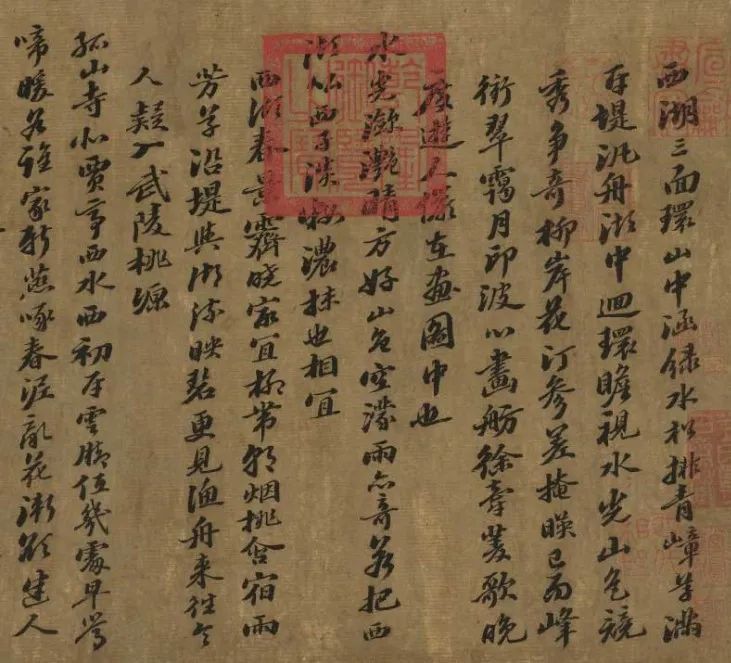 西湖三面環山中涵緑水松排青嶂草滿
平堤汎舟湖中迴環瞻視水光山色競
秀爭奇柳岸花汀參差掩暎已而峰
銜翠靄月印波心畫舫徐牽菱歌晚
度遊人儼在畫圖中也
水光瀲灔晴方好山色空濛雨亦奇若把西
湖比西子淡粧濃抹也相宜
西湖春景霽曉最宜柳帶朝烟桃含宿雨
芳草沿堤與湖流映碧更見漁舟來往令
人疑入武陵桃源
孤山寺北賈亭西水面初平雲脚低幾處早鶯
啼暖谷誰家新燕啄春泥亂花漸欲迷人
乾隆御覽之寶